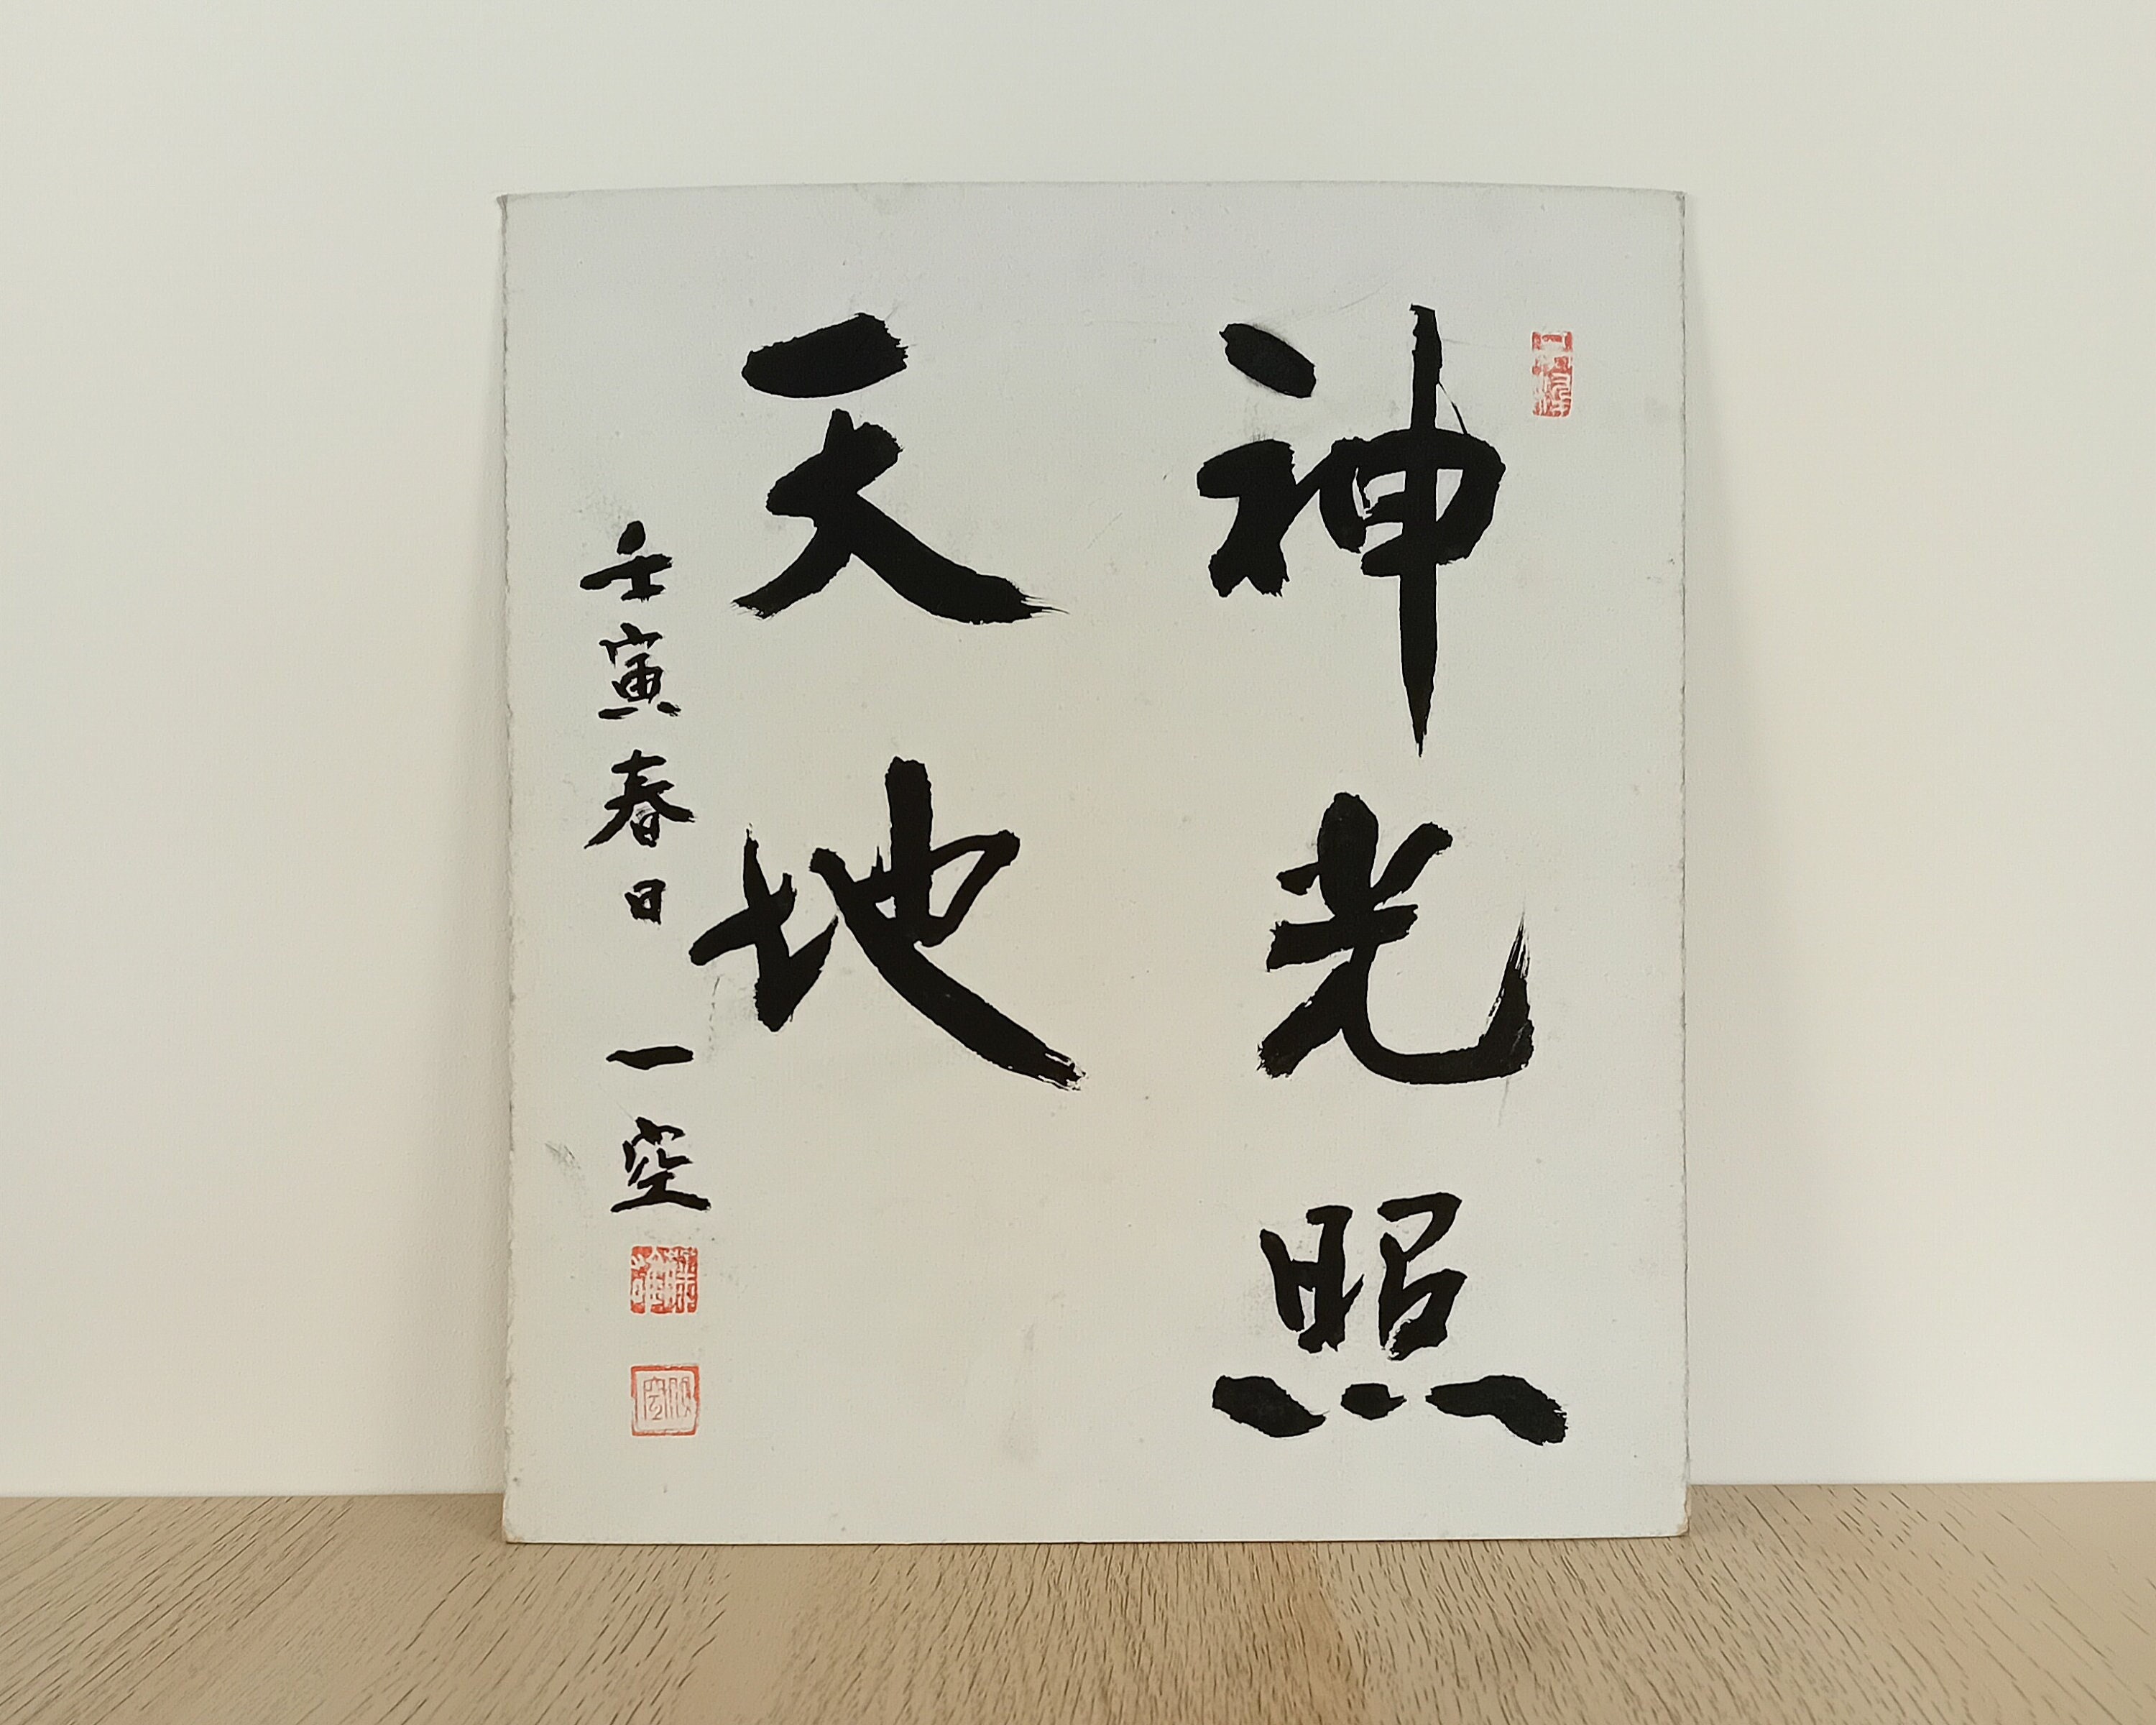 神光照
天地
壬寅春日 一空